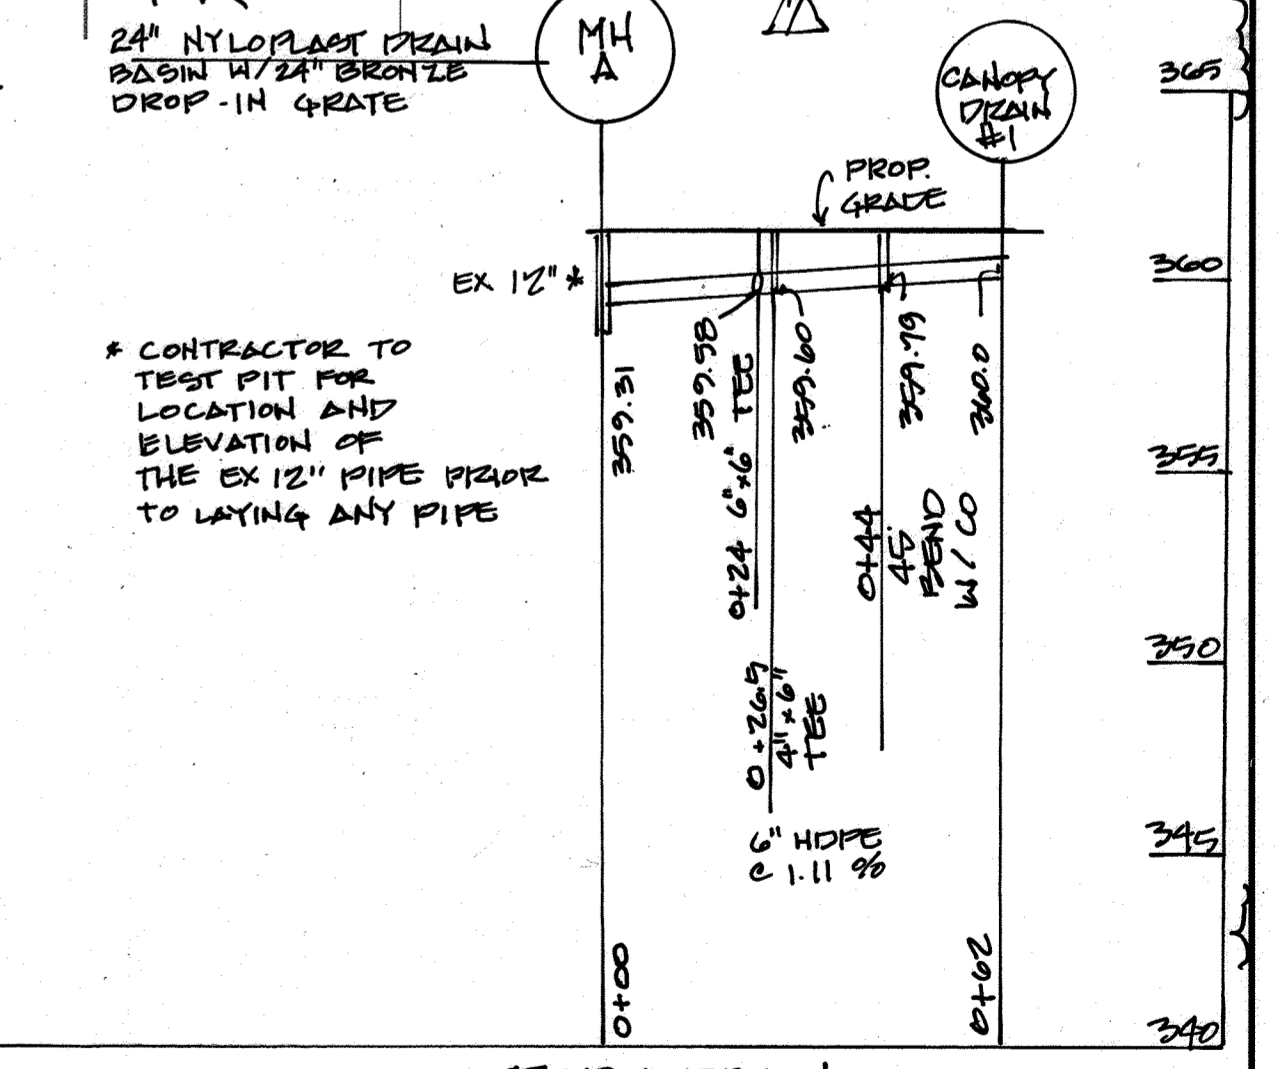 24" NYLOPLAST DRAIN
BASIN W/24" BRONZE
DROP-IN GRATE
MH
A
CANOPY
DRAIN
#1
365
PROP.
GRADE
360
EX 12" *
* CONTRACTOR TO
TEST PIT FOR
LOCATION AND
ELEVATION OF
THE EX 12" PIPE PRIOR
TO LAYING ANY PIPE
359.31
359.58
0+24 6"x6" TEE
359.60
359.79
360.0
355
0+44
45
BEND
W/CO
350
0+26.5
4"x6"
TEE
6" HDPE
@ 1.11 %
345
0+00
0+62
340